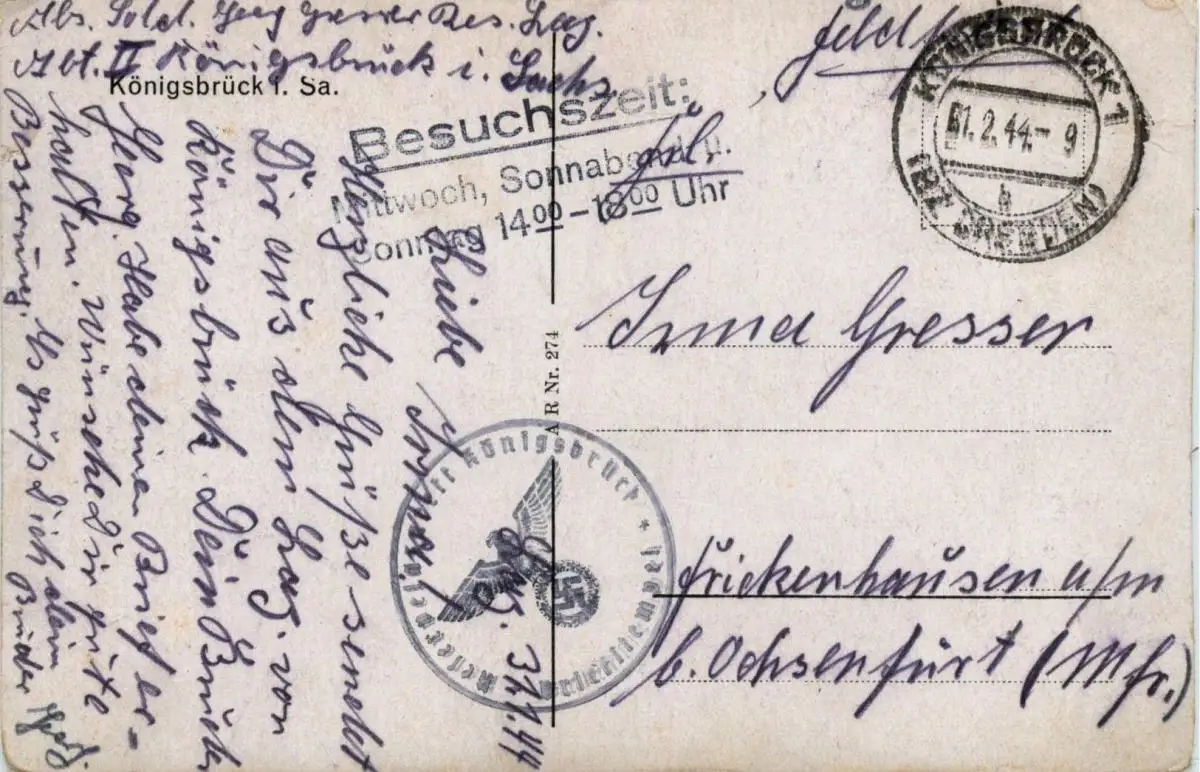 Abs. Sold. Georg Gresser Res. Laz.
Abt. II Königsbrück i. Sachs.
Königsbrück i. Sa.
Besuchszeit:
Mittwoch, Sonnabend u.
Sonntag 14⁰⁰-18⁰⁰ Uhr
Feldpost
KÖNIGSBRÜCK 1
1.2.44.- 9
b
(BZ DRESDEN)
Frl.
Irma Gresser
Frickenhausen a/m
b. Ochsenfurt (Mfr.)
A R Nr. 274
Reservelazarett Königsbrück *
Briefstempel
Laz. 31.1.44
Liebe Irma!
Herzliche Grüße sendet
Dir aus dem Laz. von
Königsbrück. Dein Bruder
Georg. Habe deinen Brief er-
halten. Wünsche Dir gute
Besserung. Es grüß Dich dein
Bruder Georg.